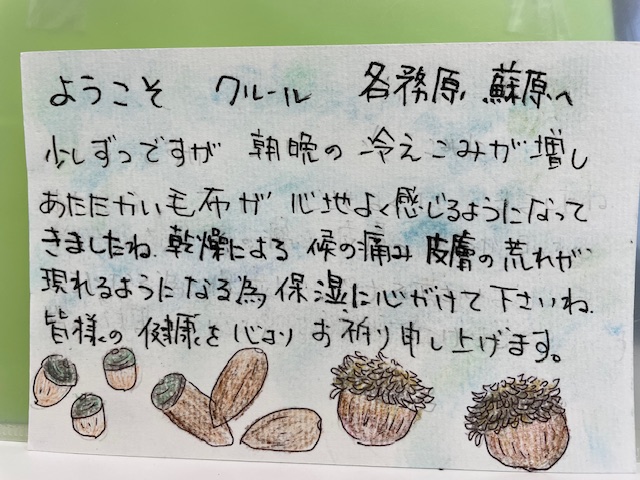 ようこそ クルール 各務原,蘇原へ
少しずつですが 朝晩の 冷えこみが増し
あたたかい毛布が 心地よく感じるようになって
きましたね。乾燥による 候の痛み 皮膚の荒れが、
現れるようになる為 保湿に心がけて下さいね。
皆様の 健康を 心より お祈り申し上げます。